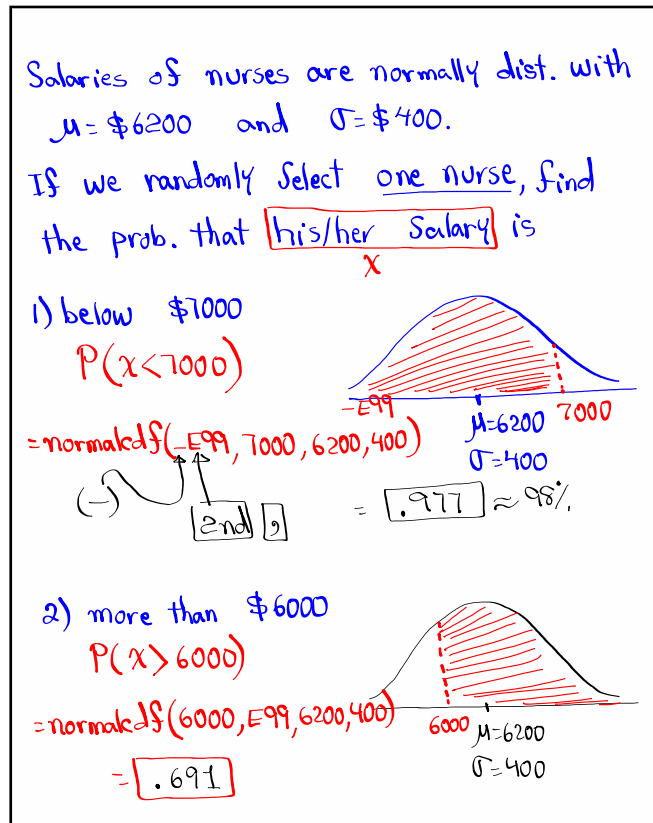 Salaries of nurses are normally dist. with
μ=$6200 and σ=$400.
If we randomly Select one nurse, find
the prob. that his/her Salary is
x
1) below $7000
P(x<7000)
-E99
μ=6200 7000
σ=400
=normalcdf(-E99,7000,6200,400)
(-)
2nd ,
= .977 ≈ 98%
2) more than $6000
P(x>6000)
=normalcdf(6000,E99,6200,400)
6000 μ=6200
σ=400
= .691